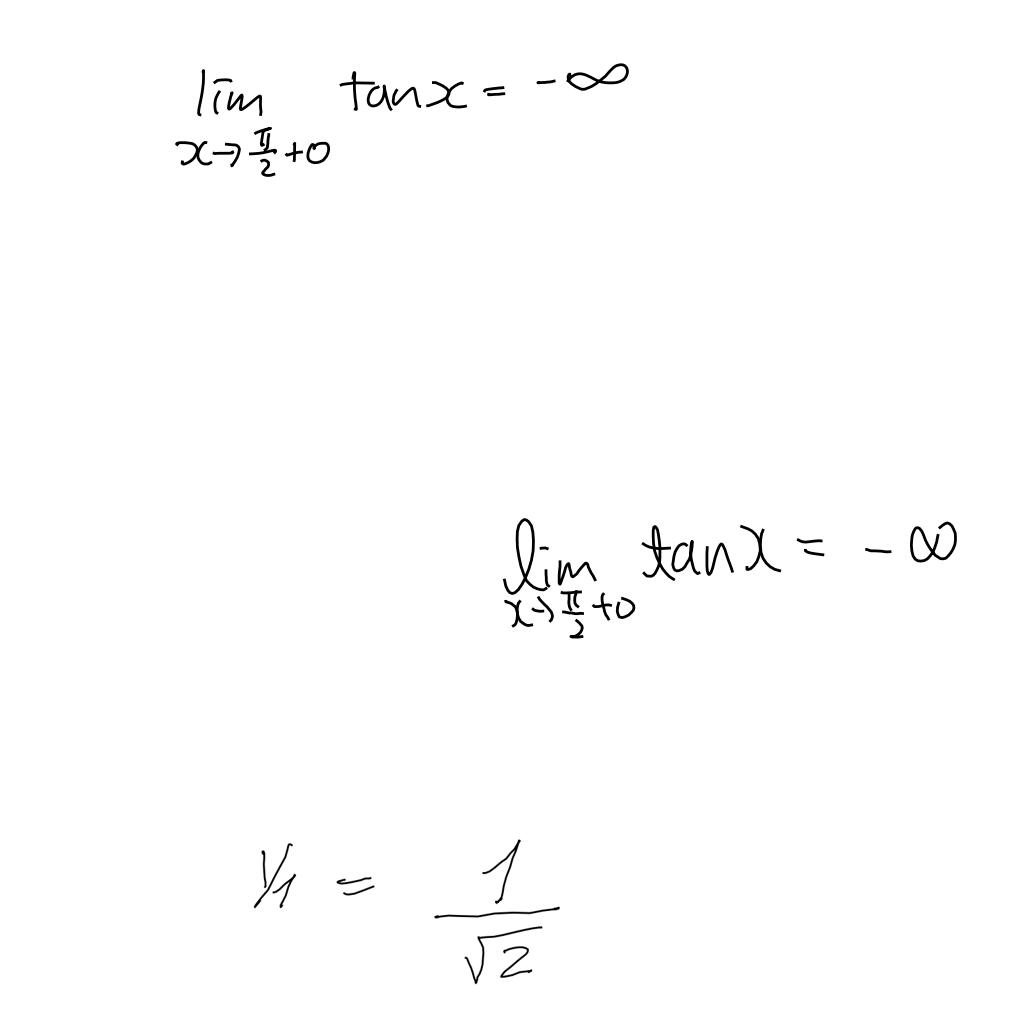 \lim_{x \to \frac{\pi}{2}+0} \tan x = -\infty
\lim_{x \to \frac{\pi}{2}+0} \tan x = -\infty
1/1 = \frac{1}{\sqrt{2}}